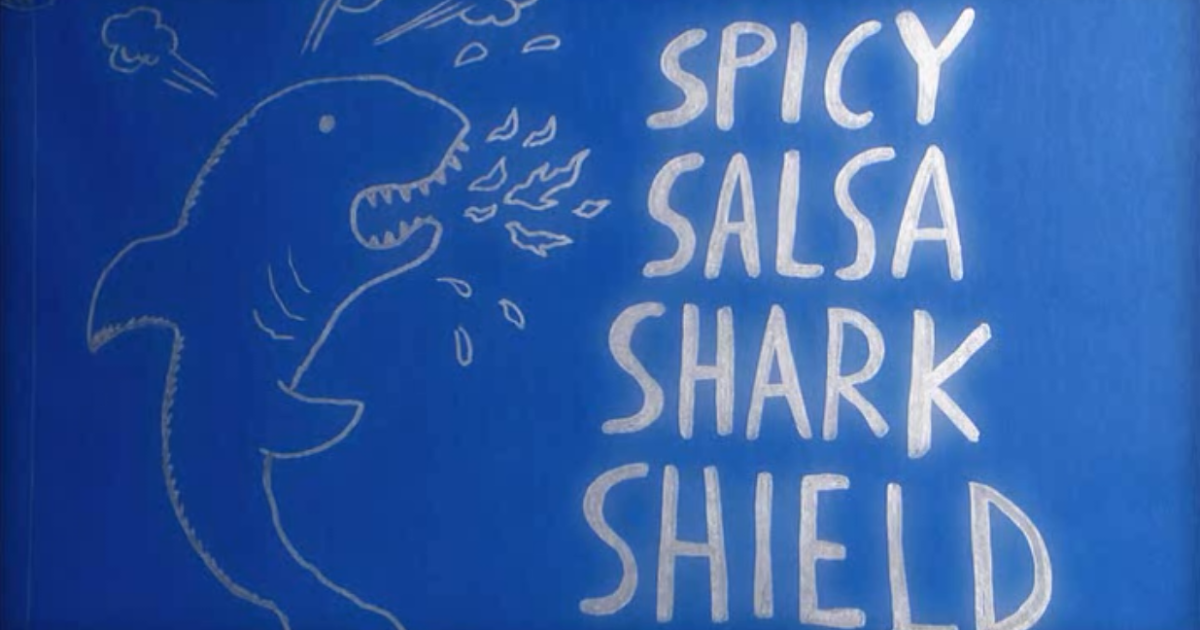 SPICY
SALSA
SHARK
SHIELD